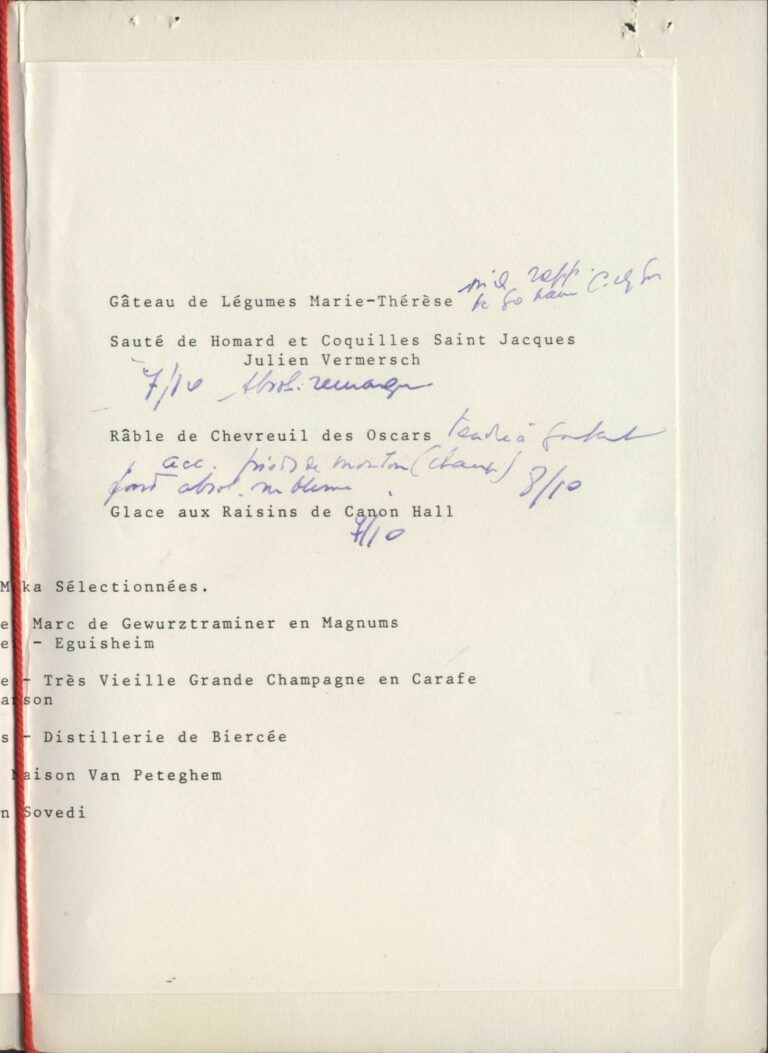 Gâteau de Légumes Marie-Thérèse
Sauté de Homard et Coquilles Saint Jacques
Julien Vermersch
7/10 Absol. remarqu
Râble de Chevreuil des Oscars tendre à souhait
acc. pieds de mouton (champ)
fond absol. sublime 8/10
Glace aux Raisins de Canon Hall
7/10
ka Sélectionnées.
e Marc de Gewurztraminer en Magnums
e - Eguisheim
e - Très Vieille Grande Champagne en Carafe
son
s - Distillerie de Biercée
Maison Van Peteghem
n Sovedi